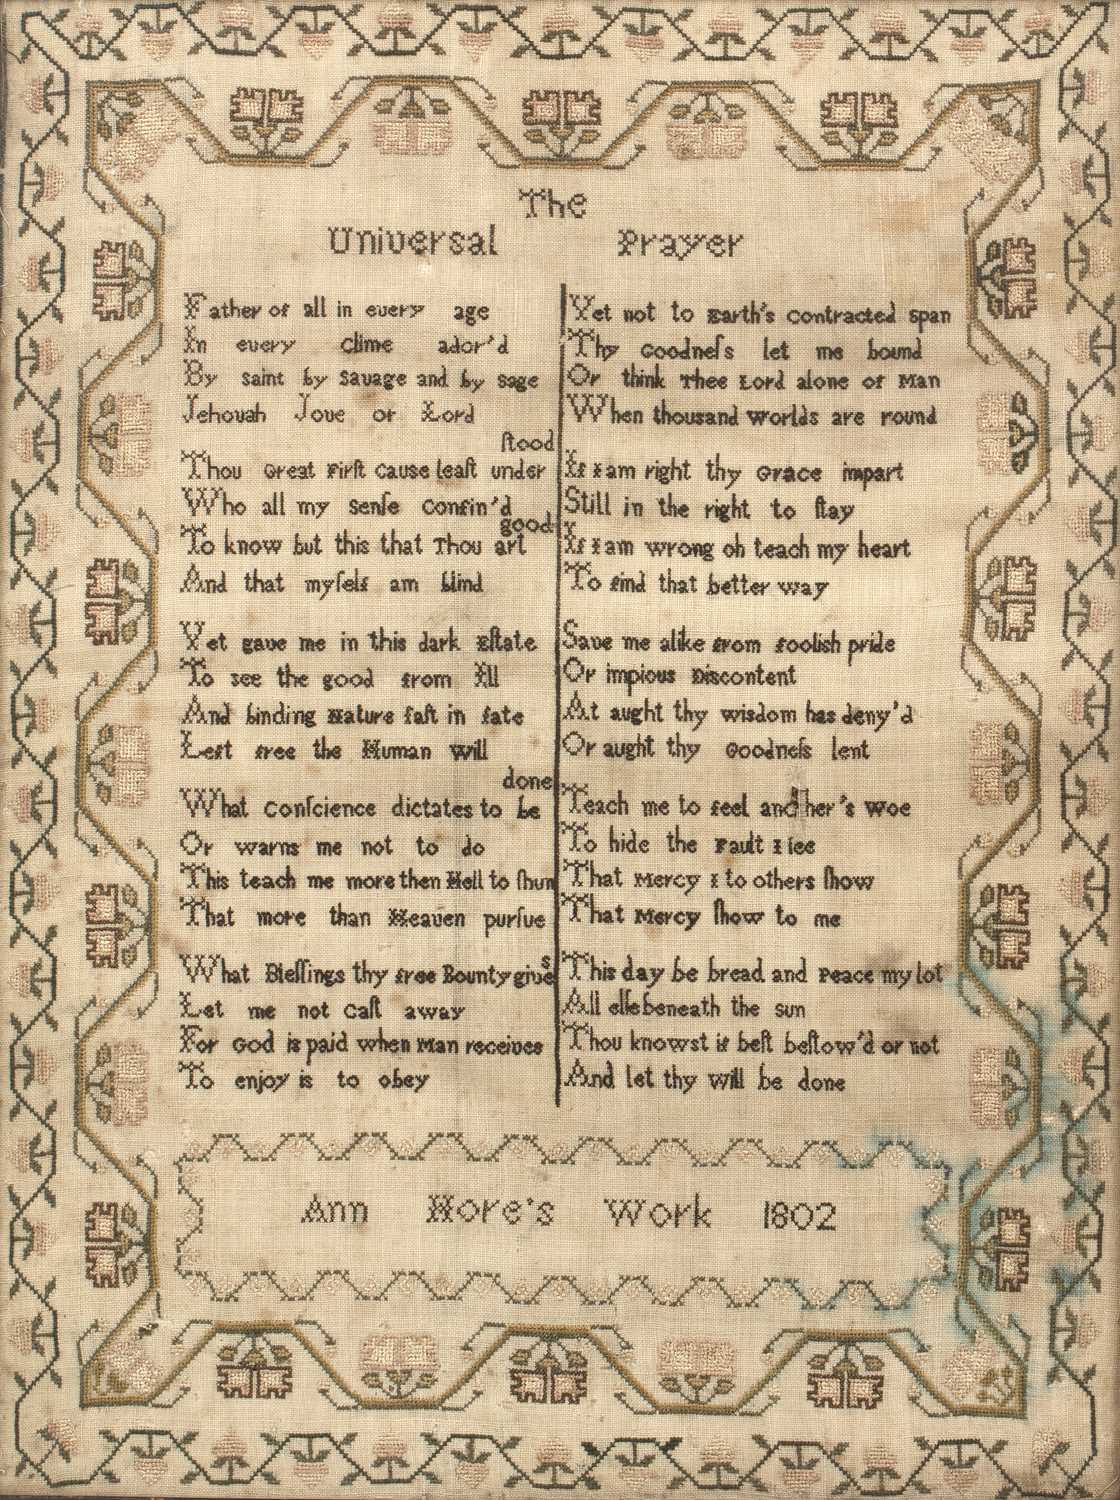 The
Universal Prayer
Father of all in every age
In every Clime ador'd
By saint by Savage and by Sage
Jehovah Jove or Lord
Thou Great Firſt Cause leaſt under stood
Who all my Senſe Confin'd
To know but this that Thou art good
And that myſelf am blind
Yet gave me in this dark Eſtate
To see the good from Ill
And binding Nature faſt in fate
Left free the Human will
What Conſcience dictates to be done
Or warns me not to do
This teach me more then Hell to ſhun
That more than Heaven purſue
What Bleſſings thy free Bounty gives
Let me not Caſt away
For God is paid when Man receives
To enjoy is to obey
Yet not to Earth's Contracted Span
Thy Goodneſs let me bound
Or think Thee Lord alone of Man
When thousand worlds are round
If I am right thy Grace impart
Still in the right to ſtay
If I am wrong oh teach my heart
To find that better way
Save me alike from foolish pride
Or impious Discontent
At aught thy wisdom has deny'd
Or aught thy Goodneſs lent
Teach me to feel another's woe
To hide the Fault I ſee
That Mercy I to others ſhow
That Mercy ſhow to me
This day be bread and Peace my lot
All elſe beneath the sun
Thou knowst if beſt beſtow'd or not
And let thy will be done
Ann Hore's Work 1802